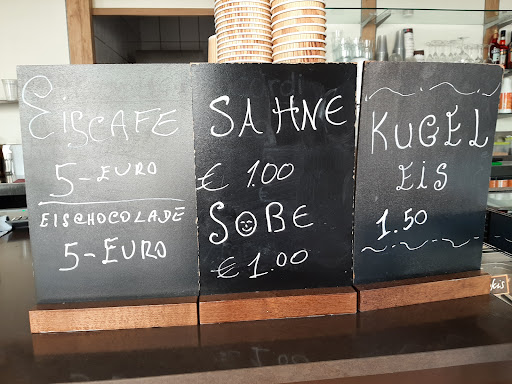 EISCAFE
5-EURO
EISCHOCOLADE
5-EURO
SAHNE
€ 1.00
SOBE
€ 1.00
KUGEL
EiS
1.50